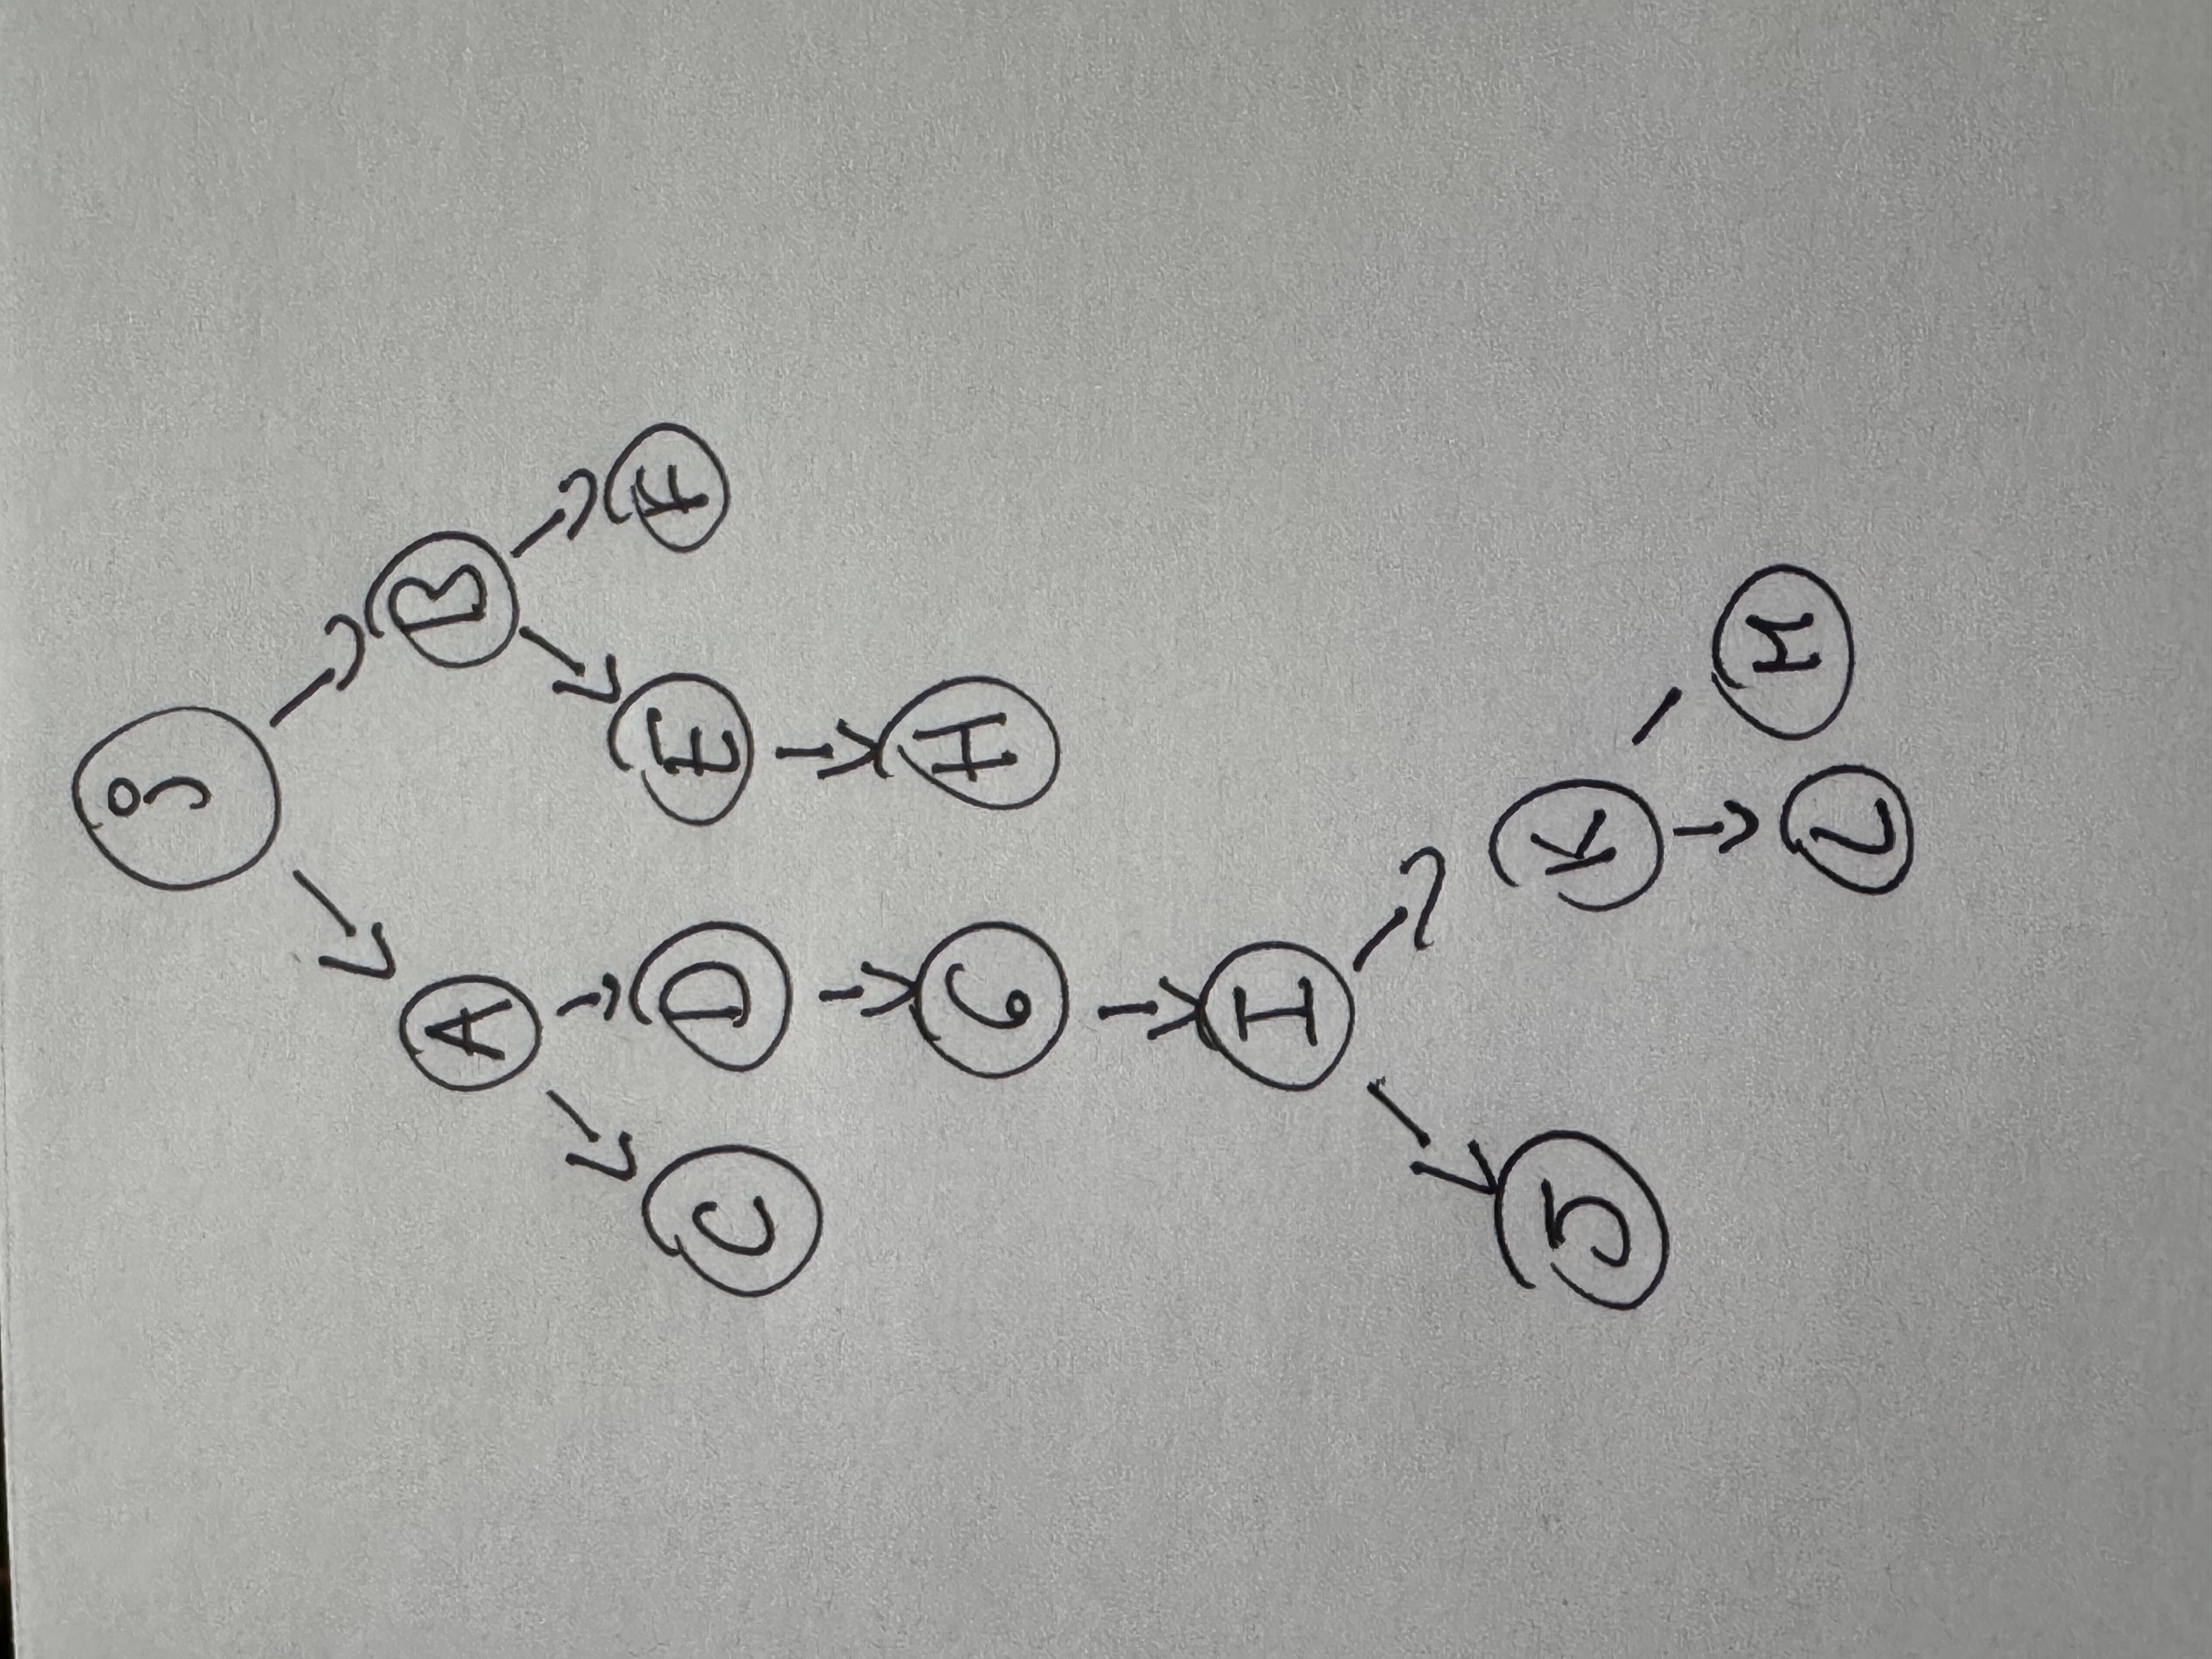 j
A B
C D E F
G H
I
J K
L M